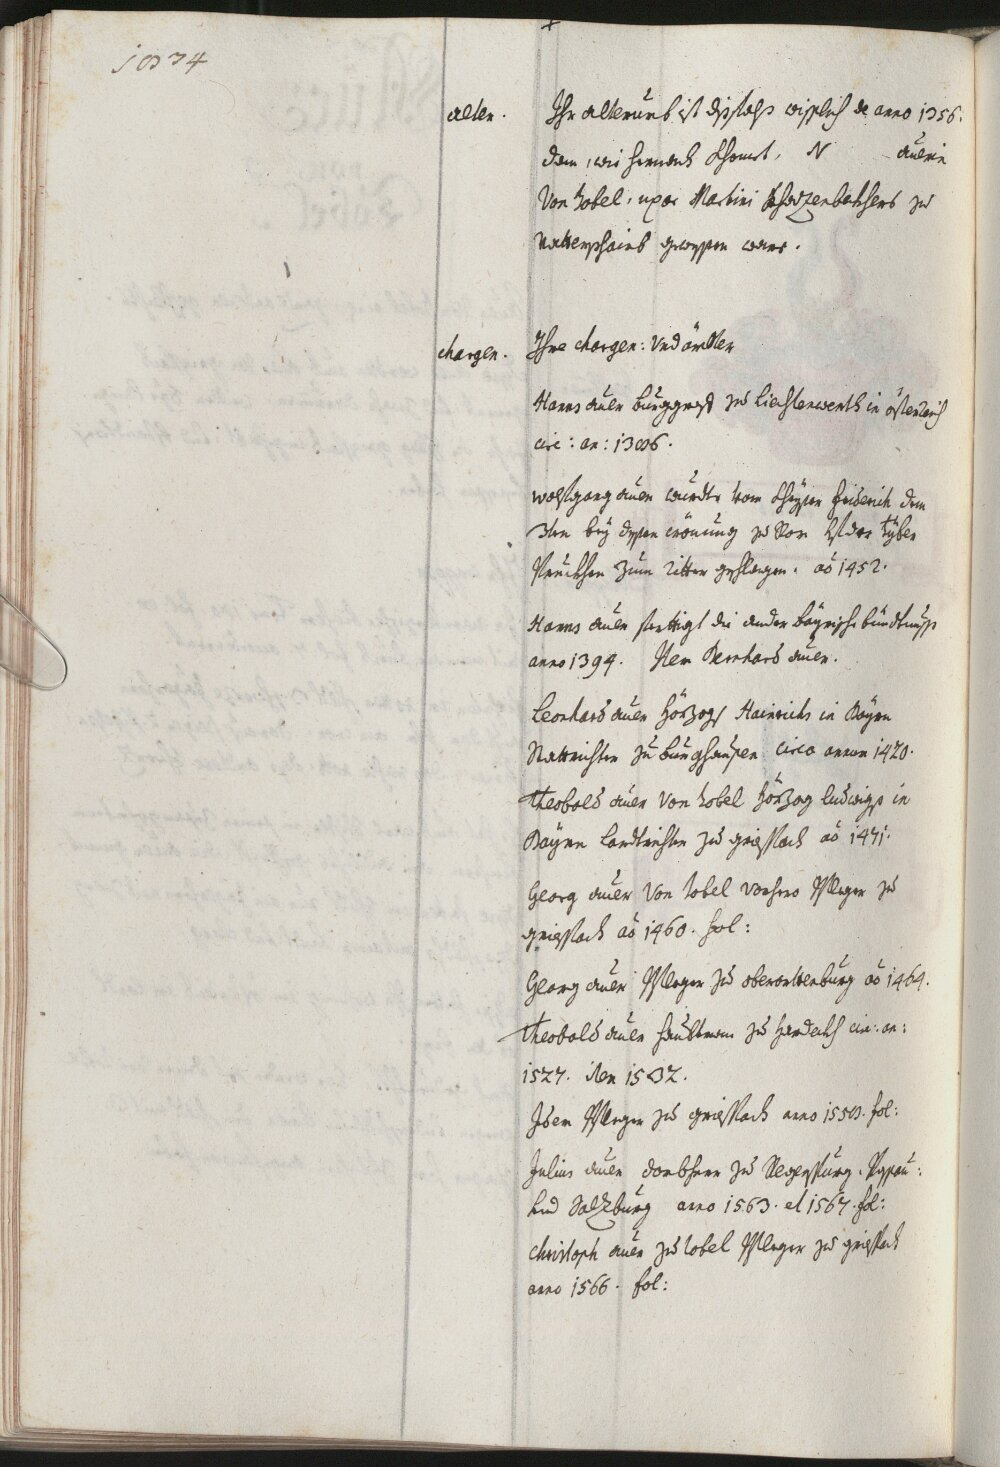 1074
alter. Ihr alterumb ist dissfahls wisslich de anno 1356.
dan, wie hernach khomt, N auerin
von tobel, uxor Martini Khazenbekhens zu
gewessen ware.
chargen. Ihre chargen: Und ämbter
Hanns auer burggraff zu Liechtenwerth in össterreich
circ: an: 1306.
wolfgang auer wurdte vom Khayser friderich dem
3ten bey dessen crönung zu Rom auf der tyber
Prukhen zum ritter geschlagen. aõ 1452.
Hanns auer ferttigt die ander bayrische bündtnuss
anno 1394. Item Bernhard auer.
Leonhard auer Hörzogs Hainrichs in Bayrn
Stattrichter zu burghausen circa annum 1420.
Theobald auer von tobel Hörzog ludwigs in
Bayrn Landtrichter zu griesspach aõ 1471.
Georg auer von tobel vorhero Pfleger zu
griesspach aõ 1460. fol:
Georg auer Pfleger zu oberortenburg aõ 1464.
Theobald auer haubtman zu hardekh cir: an:
1527. item 1532.
Idem Pfleger zu griesspach anno 1550. fol:
Julius auer dombherr zu Regenspurg, Passau:
und Salzburg anno 1563. et 1567. fol:
Christoph auer zu tobel Pfleger zu griesspach
anno 1566. fol: